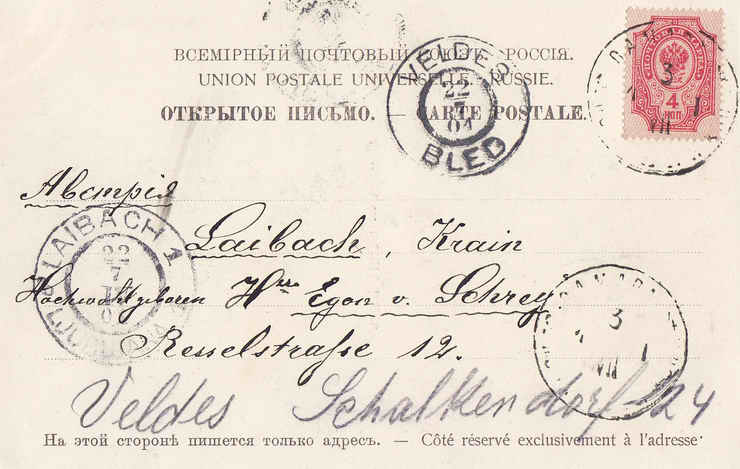 ВСЕМІРНЫЙ ПОЧТОВЫЙ СОЮЗЪ. РОССІЯ.
UNION POSTALE UNIVERSELLE. RUSSIE.
ОТКРЫТОЕ ПИСЬМО. — CARTE POSTALE.
4
КОП
3
VII
1
VELDES
22
7
01
BLED
Австрія
Laibach, Krain
Hochwohlgeboren Hrn Egon v. Schrey
Resselstraße 12.
LAIBACH 1
22
7
3
1
VII
Veldes Schalkendorf 24
На этой сторонѣ пишется только адресъ. — Côté réservé exclusivement à l'adresse